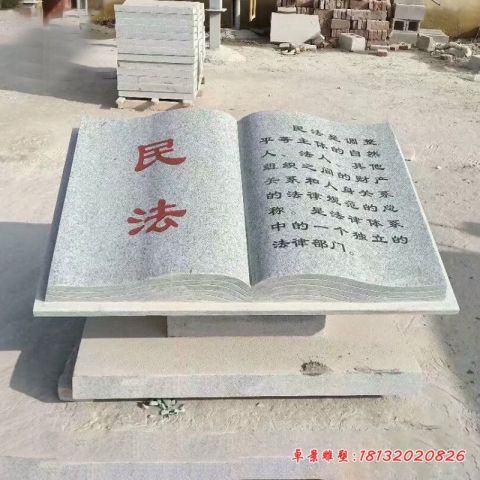 民
法
民法是调整
平等主体的自然
人、法人、其他
组织之间的财产
关系和人身关系
的法律规范的总
称，是法律体系
中的一个独立的
法律部门。
卓景雕塑:18132020826